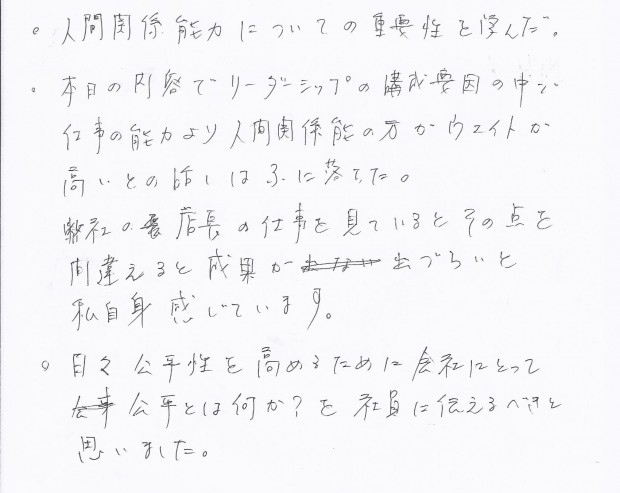 。人間関係能力についての重要性を学んだ。
。本日の内容でリーダーシップの構成要因の中で
仕事の能力より人間関係能の方がウエイトが
高いとの話しはふに落ちた。
弊社の店長の仕事を見ているとその点を
間違えると成果が出づらいと
私自身感じています。
。日々公平性を高めるために会社にとって
公平とは何か?を社員に伝えるべきと
思いました。